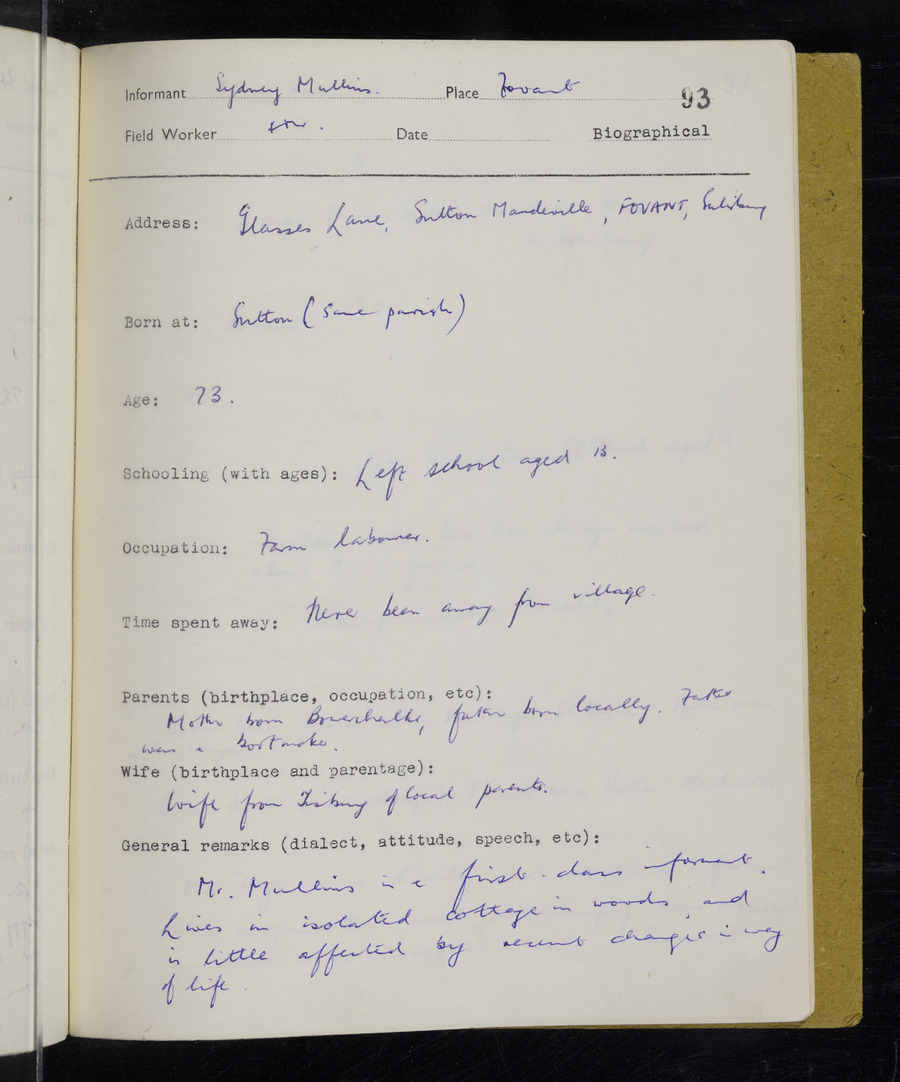 Informant Sydney Mullins. Place Fovant 93
Field Worker Date Biographical
Address: Glasses Lane, Sutton Mandeville, FOVANT, Salisbury
Born at: Sutton (same parish)
Age: 73.
Schooling (with ages): Left school aged 13.
Occupation: Farm labourer.
Time spent away: Never been away from village.
Parents (birthplace, occupation, etc):
Mother born Bowerchalke, father born locally. Father
was a bootmaker.
Wife (birthplace and parentage):
Wife from Tisbury of local parents.
General remarks (dialect, attitude, speech, etc):
Mr. Mullins is a first-class informant.
Lives in isolated cottage in woods, and
is little affected by recent changes in way
of life.